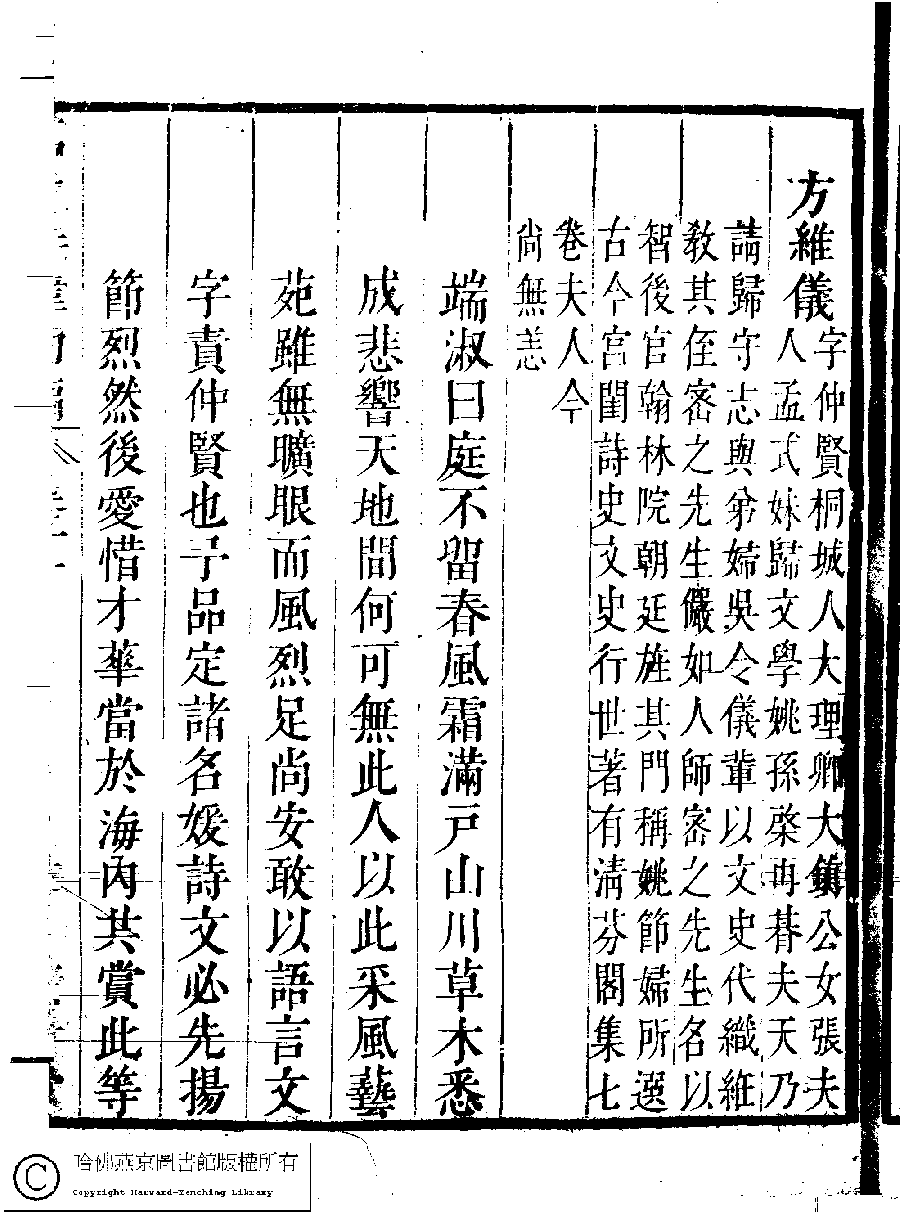 方維儀
字仲賢桐城人大理卿大鎮公女張夫
人孟式妹歸文學姚孫棨再朞夫天乃
請歸守志與弟婦吳令儀輩以文史代織絍
教其侄密之先生儼如人師密之先生名以
智後官翰林院朝廷旌其門稱姚節婦所選
古今宫閨詩史文史行世著有清芬閣集七
卷夫人今
尚無恙
端淑曰庭不留春風霜滿戸山川草木悉
成悲響天地間何可無此人以此采風藝
苑雖無曠眼而風烈足尚安敢以語言文
字責仲賢也予品定諸名媛詩文必先揚
節烈然後愛惜才華當於海內共賞此等
哈佛燕京圖書館版權所有
Copyright Harvard-Yenching Library